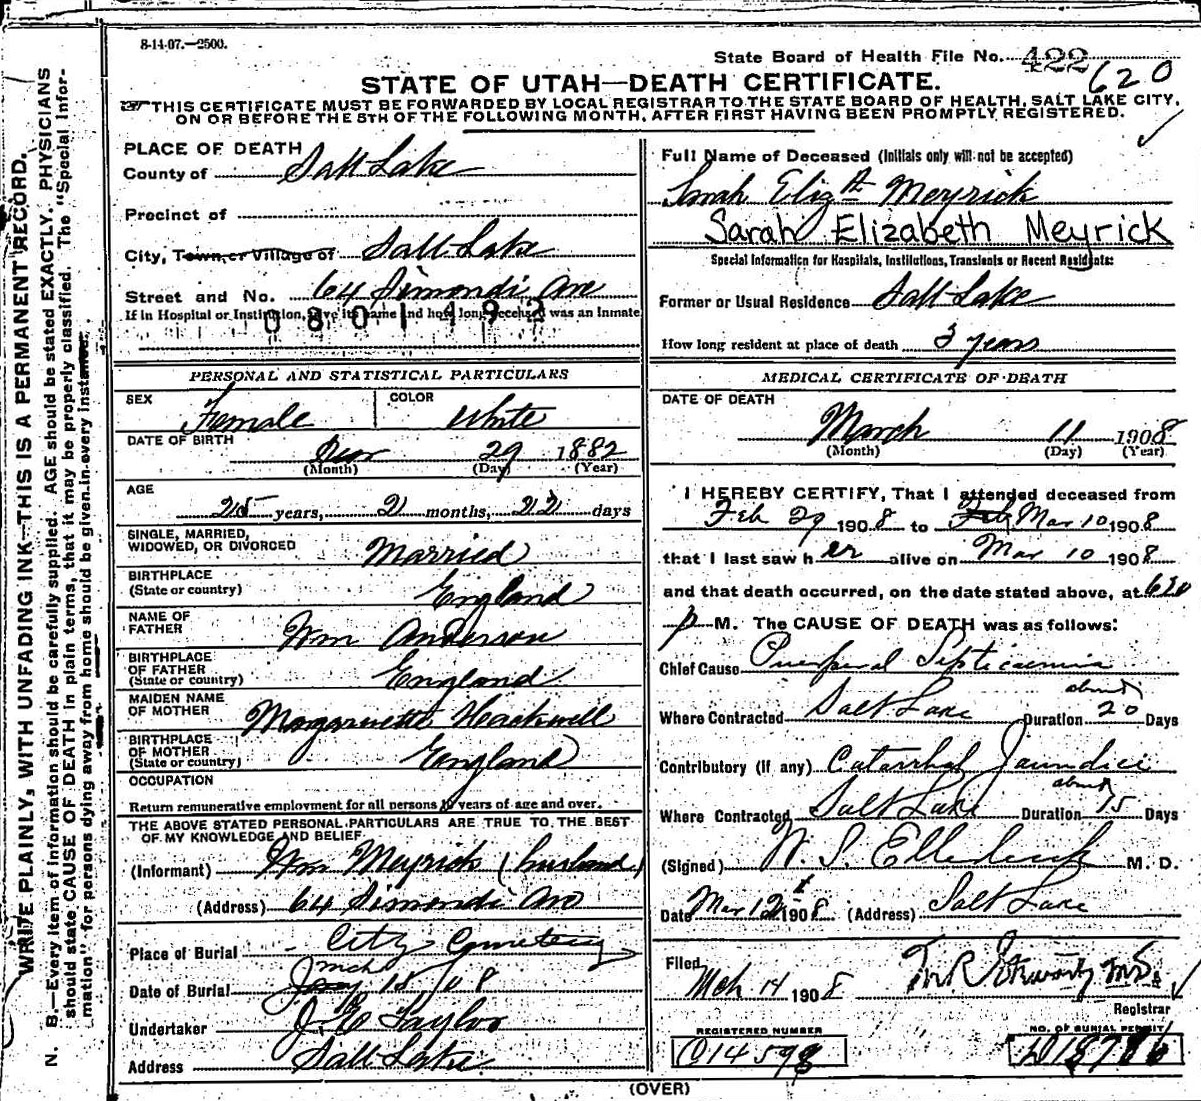 8-14-07.—2500.
State Board of Health File No. 422
620
STATE OF UTAH—DEATH CERTIFICATE.
THIS CERTIFICATE MUST BE FORWARDED BY LOCAL REGISTRAR TO THE STATE BOARD OF HEALTH, SALT LAKE CITY,
ON OR BEFORE THE 5TH OF THE FOLLOWING MONTH, AFTER FIRST HAVING BEEN PROMPTLY REGISTERED.
WRITE PLAINLY, WITH UNFADING INK—THIS IS A PERMANENT RECORD.
N. B.—Every item of information should be carefully supplied. AGE should be stated EXACTLY. PHYSICIANS
should state CAUSE OF DEATH in plain terms, that it may be properly classified. The "Special Infor-
mation" for persons dying away from home should be given in every instance.
PLACE OF DEATH
County of Salt Lake
Precinct of
City, Town, or Village of Salt Lake
Street and No. 64 Simondi Ave
If in Hospital or Institution, give its name and how long deceased was an Inmate
0801192
PERSONAL AND STATISTICAL PARTICULARS
SEX Female COLOR White
DATE OF BIRTH 29 1882
(Month) (Day) (Year)
AGE
25 years, 2 months, 22 days
SINGLE, MARRIED,
WIDOWED, OR DIVORCED Married
BIRTHPLACE
(State or country) England
NAME OF
FATHER Wm Anderson
BIRTHPLACE
OF FATHER
(State or country) England
MAIDEN NAME
OF MOTHER Hackwell
BIRTHPLACE
OF MOTHER
(State or country) England
OCCUPATION
Return remunerative employment for all persons 10 years of age and over.
THE ABOVE STATED PERSONAL PARTICULARS ARE TRUE TO THE BEST
OF MY KNOWLEDGE AND BELIEF
(Informant) Wm Meyrick (husband)
(Address) 64 Simondi Ave
Place of Burial City Cemetery
mch
Date of Burial 15 / 08
Undertaker J. E Taylor
Address Salt Lake
Full Name of Deceased (Initials only will not be accepted)
Sarah Elizth Meyrick
Sarah Elizabeth Meyrick
Special Information for Hospitals, Institutions, Transients or Recent Residents:
Former or Usual Residence Salt Lake
How long resident at place of death 3 years
MEDICAL CERTIFICATE OF DEATH
DATE OF DEATH
March 11 1908
(Month) (Day) (Year)
I HEREBY CERTIFY, That I attended deceased from
Feb 29 1908 to Feb Mar 10 1908
that I last saw her alive on Mar 10 1908
and that death occurred, on the date stated above, at 620
p M. The CAUSE OF DEATH was as follows:
Chief Cause Puerperal Septicaemia
about
Where Contracted Salt Lake Duration 20 Days
Contributory (if any) Catarrhal Jaundice
about
Where Contracted Salt Lake Duration 15 Days
(Signed) W. S. Ellerbeck M. D.
Date Mar 12 1908 (Address) Salt Lake
Filed
Mch 14 1908
Registrar
REGISTERED NUMBER
NO. OF BURIAL PERMIT
(OVER)